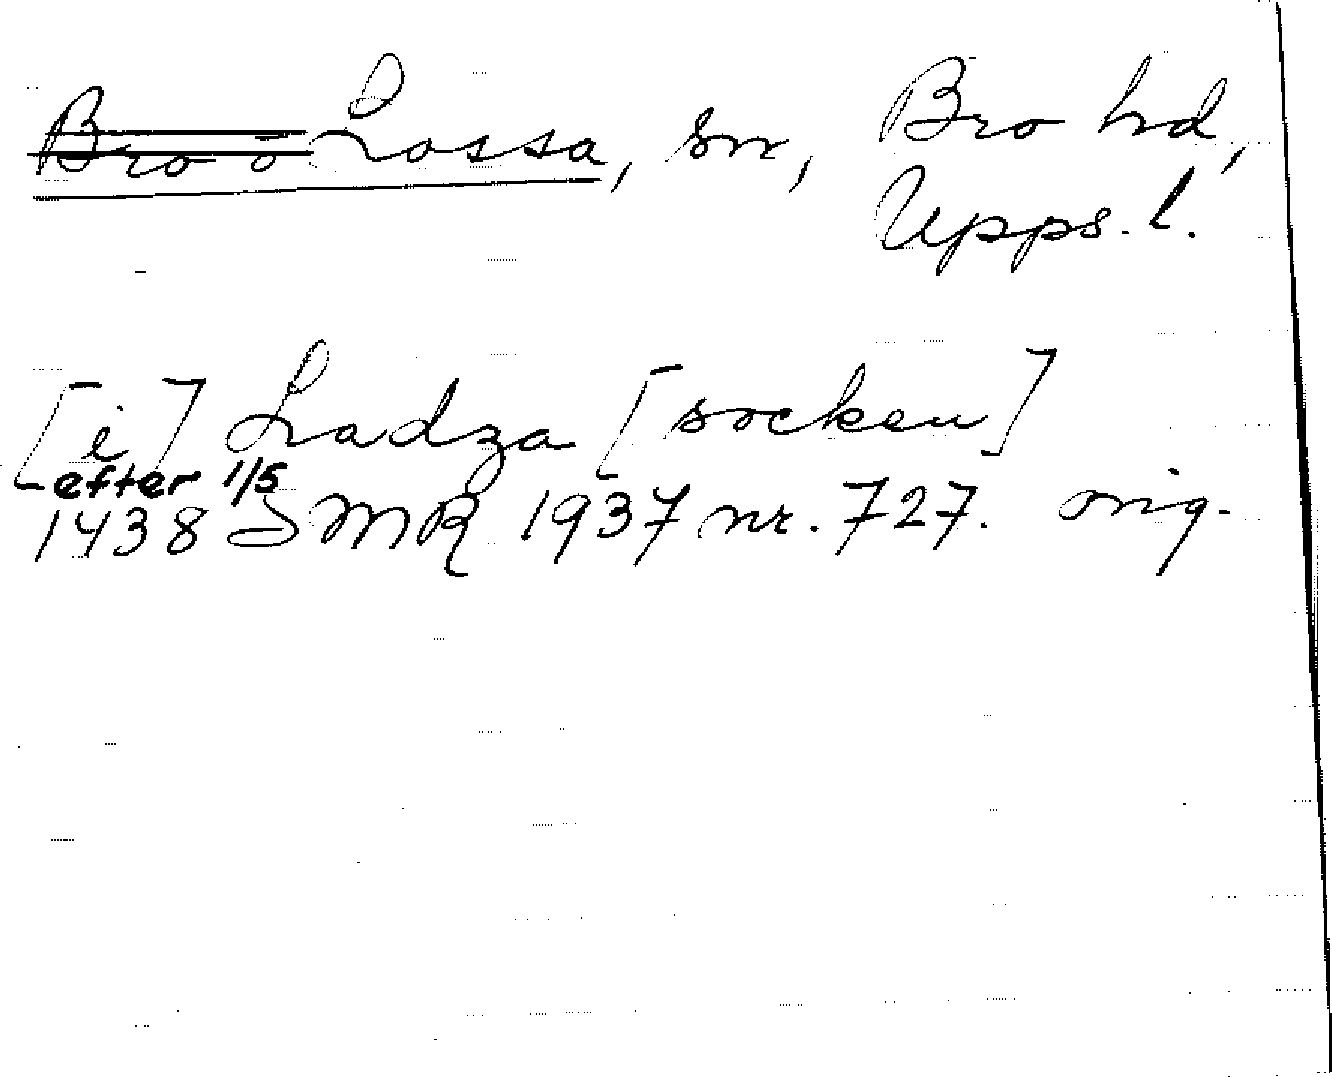 Bro o Lossa, sn, Bro hd,
Upps. l.
[i] Ladza [socken]
efter 1/5
1438 SMR 1937 nr. 727. orig.